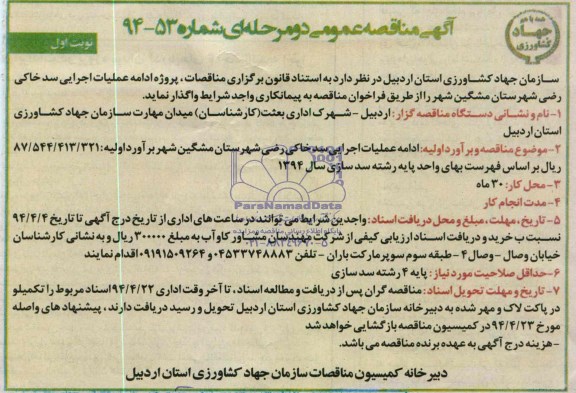 همه با هم
جهاد
کشاورزی
آگهی مناقصه عمومی دو مرحله‌ای شماره ۵۳-۹۴
نوبت اول
سازمان جهاد کشاورزی استان اردبیل در نظر دارد به استناد قانون برگزاری مناقصات، پروژه ادامه عملیات اجرایی سد خاکی
رضی شهرستان مشگین شهر را از طریق فراخوان مناقصه به پیمانکاری واجد شرایط واگذار نماید.
۱-نام و نشانی دستگاه مناقصه گزار: اردبیل - شهرک اداری بعثت (کارشناسان) میدان مهارت سازمان جهاد کشاورزی
استان اردبیل
۲-موضوع مناقصه و برآورد اولیه: ادامه عملیات اجرایی سد خاکی رضی شهرستان مشگین شهر برآورد اولیه: ۸۷/۵۴۴/۴۱۳/۳۲۱
ریال بر اساس فهرست بهای واحد پایه رشته سد سازی سال ۱۳۹۴
۳-محل کار: ۳۰ ماه
۴-مدت انجام کار
۵- تاریخ، مهلت، مبلغ و محل دریافت اسناد: واجدین شرایط می توانند در ساعت های اداری از تاریخ درج آگهی تا تاریخ ۹۴/۴/۴
نسبت به خرید و دریافت اسناد ارزیابی کیفی از شرکت مهندسان مشاور کاوآب به مبلغ ۳۰۰۰۰۰ ریال و به نشانی کارشناسان
خیابان وصال - وصال ۴ - طبقه سوم سوپرمارکت باران - تلفن ۰۴۵۳۳۷۴۸۸۸۳ و ۰۹۱۹۱۵۰۹۲۶۴ اقدام نمایند
۶-حداقل صلاحیت مورد نیاز: پایه ۴ رشته سد سازی
۷- تاریخ و مهلت تحویل اسناد: مناقصه گران پس از دریافت و مطالعه اسناد، تا آخر وقت اداری ۹۴/۴/۲۲ اسناد مربوط را تکمیل و
در پاکت لاک و مهر شده به دبیرخانه سازمان جهاد کشاورزی استان اردبیل تحویل و رسید دریافت دارند، پیشنهاد های واصله
مورخ ۹۴/۴/۲۳ در کمیسیون مناقصه بازگشایی خواهد شد
-هزینه درج آگهی به عهده برنده مناقصه می باشد.
دبیر خانه کمیسیون مناقصات سازمان جهاد کشاورزی استان اردبیل
ParsNamadData
۰۲۱-۸۸۳۴۹۶۷۰-۵